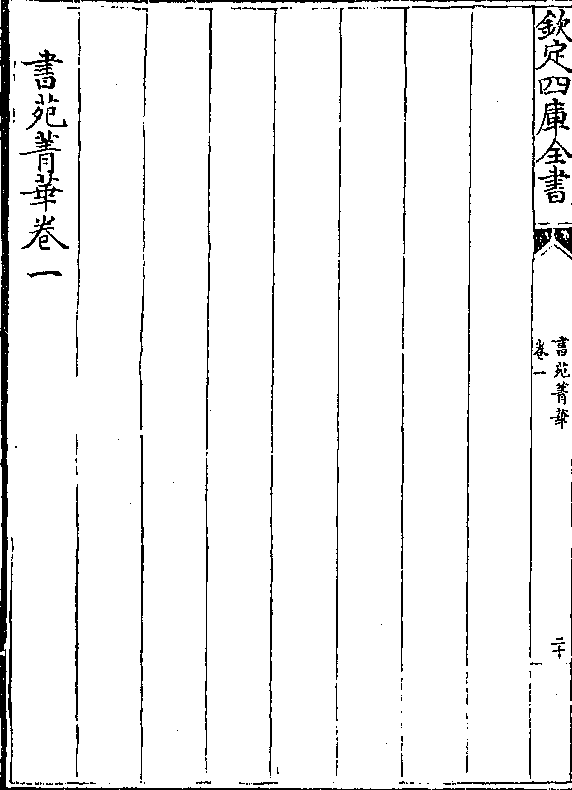 欽定四庫全書
書苑菁華
卷一
二十
書苑菁華卷一